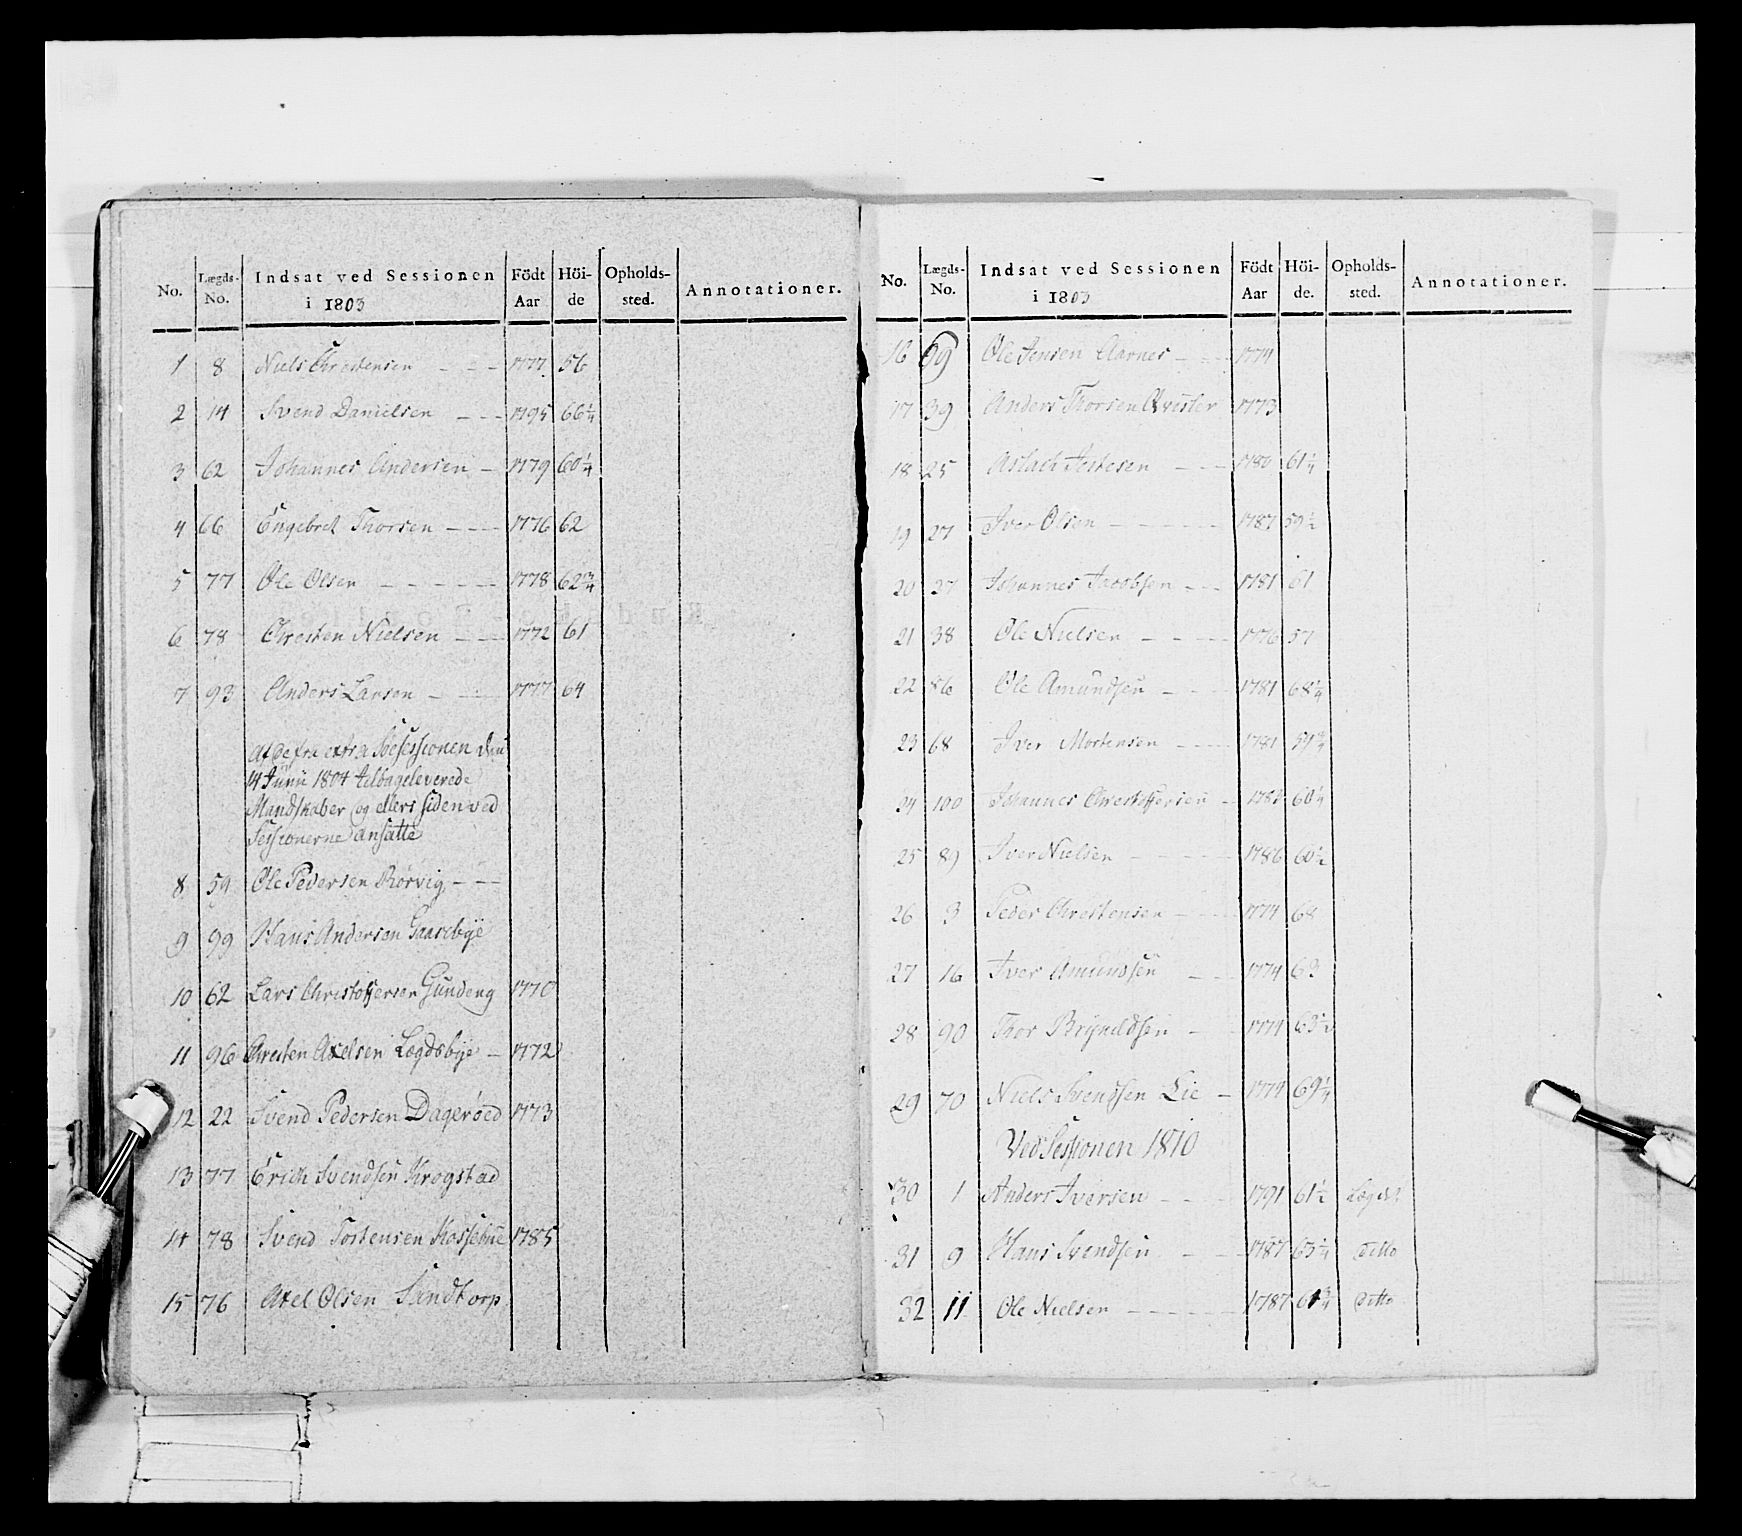 No. Lægds-No. Indsat ved Sessionen i 1803 Födt Aar Höi-de Opholds-sted. Annotationer.
1 8 Niels Christensen - - - 1777 56
2 14 Svend Danielsen - - - 1795 66 1/4
3 62 Johannes Andersen - 1779 60 1/4
4 66 Engebret Thorsen - - - 1776 62
5 77 Ole Olsen - - - - - 1778 62 3/4
6 78 Christen Nielsen - - - 1772 61
7 93 Anders Larsen - - - 1777 64
Af de fra extra Söesessionen den
14 Junii 1804 tilbageleverede
Mandskaber og ellers siden ved
Sessionerne ansatte
8 59 Ole Pedersen Rörvig - - -
9 99 Hans Andersen Gaasebye
10 62 Lars Christoffersen Gundeng 1770
11 96 Christen Axelsen Lægdsbye - 1772
12 22 Svend Pedersen Dageröed 1773
13 77 Erich Svendsen Krogstad
14 78 Svend Tostensen Kossebue 1785
15 76 Axel Olsen Sandtorp
No. Lægds-No. Indsat ved Sessionen i 1803 Födt Aar Höi-de. Opholds-sted. Annotationer.
16 59 Ole Jensen Aarnes - - - 1774
17 39 Anders Thorsen Qvester 1773
18 25 Aslach Jestesen - - - 1780 61 1/4
19 27 Iver Olsen - - - - - 1787 59 1/2
20 27 Johannes Jacobsen - - - 1781 61
21 38 Ole Nielsen - - - - 1776 57
22 56 Ole Amundsen - - - 1781 68 1/4
23 68 Iver Mortensen - - - 1781 59 3/4
24 100 Johannes Christoffersen - 1783 60 1/4
25 89 Iver Nielsen - - - - - 1786 60 1/2
26 3 Peder Christensen - - - 1774 68
27 16 Iver Amundsen - - 1774 63
28 90 Thor Brynildsen - 1774 63 1/2
29 70 Niels Svendsen Lie - 1774 69 1/4
Ved Sessionen 1810
30 1 Anders Iversen - - - 1791 61 1/2 Lægdet
31 9 Hans Svendsen - - - 1787 63 1/4 ditto
32 11 Ole Nielsen - - - - - 1787 61 3/4 ditto